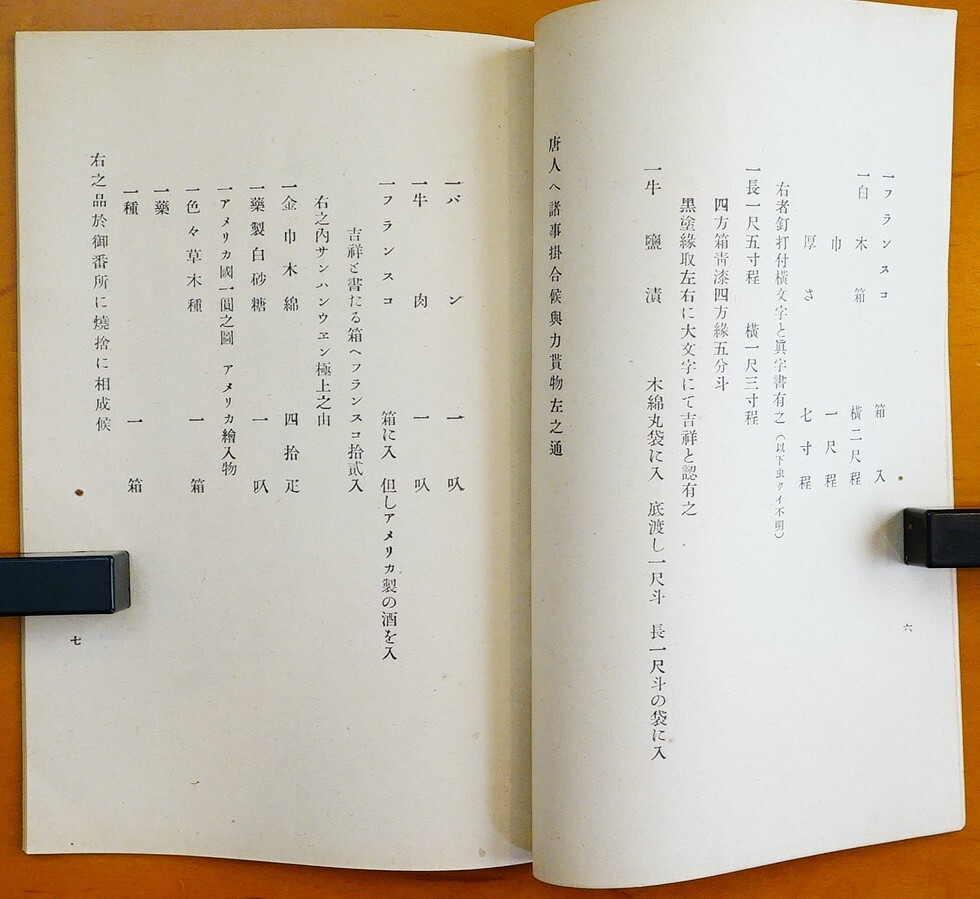 一フランスコ　箱入
一白木箱　横二尺程
巾　一尺程
厚さ　七寸程
右者釘打付横文字と眞字書有之（以下虫クイ不明）
一長一尺五寸程　横一尺三寸程
四方箱靑漆四方緣五分斗
黑塗緣取左右に大文字にて吉祥と認有之
一牛鹽漬　木綿丸袋に入　底渡し一尺斗　長一尺斗の袋に入
唐人へ諸事掛合候與力貰物左之通
六
一パン　一叺
一牛肉　一叺
一フランスコ　箱に入　但しアメリカ製の酒を入
吉祥と書たる箱へフランスコ拾貳入
右之內サンハンウエン極上之由
一金巾木綿　四拾疋
一藥製白砂糖　一叺
一アメリカ國一圓之圖　アメリカ繪入物
一色々草木種　一箱
一藥
一種　一箱
右之品於御番所に燒捨に相成候
七